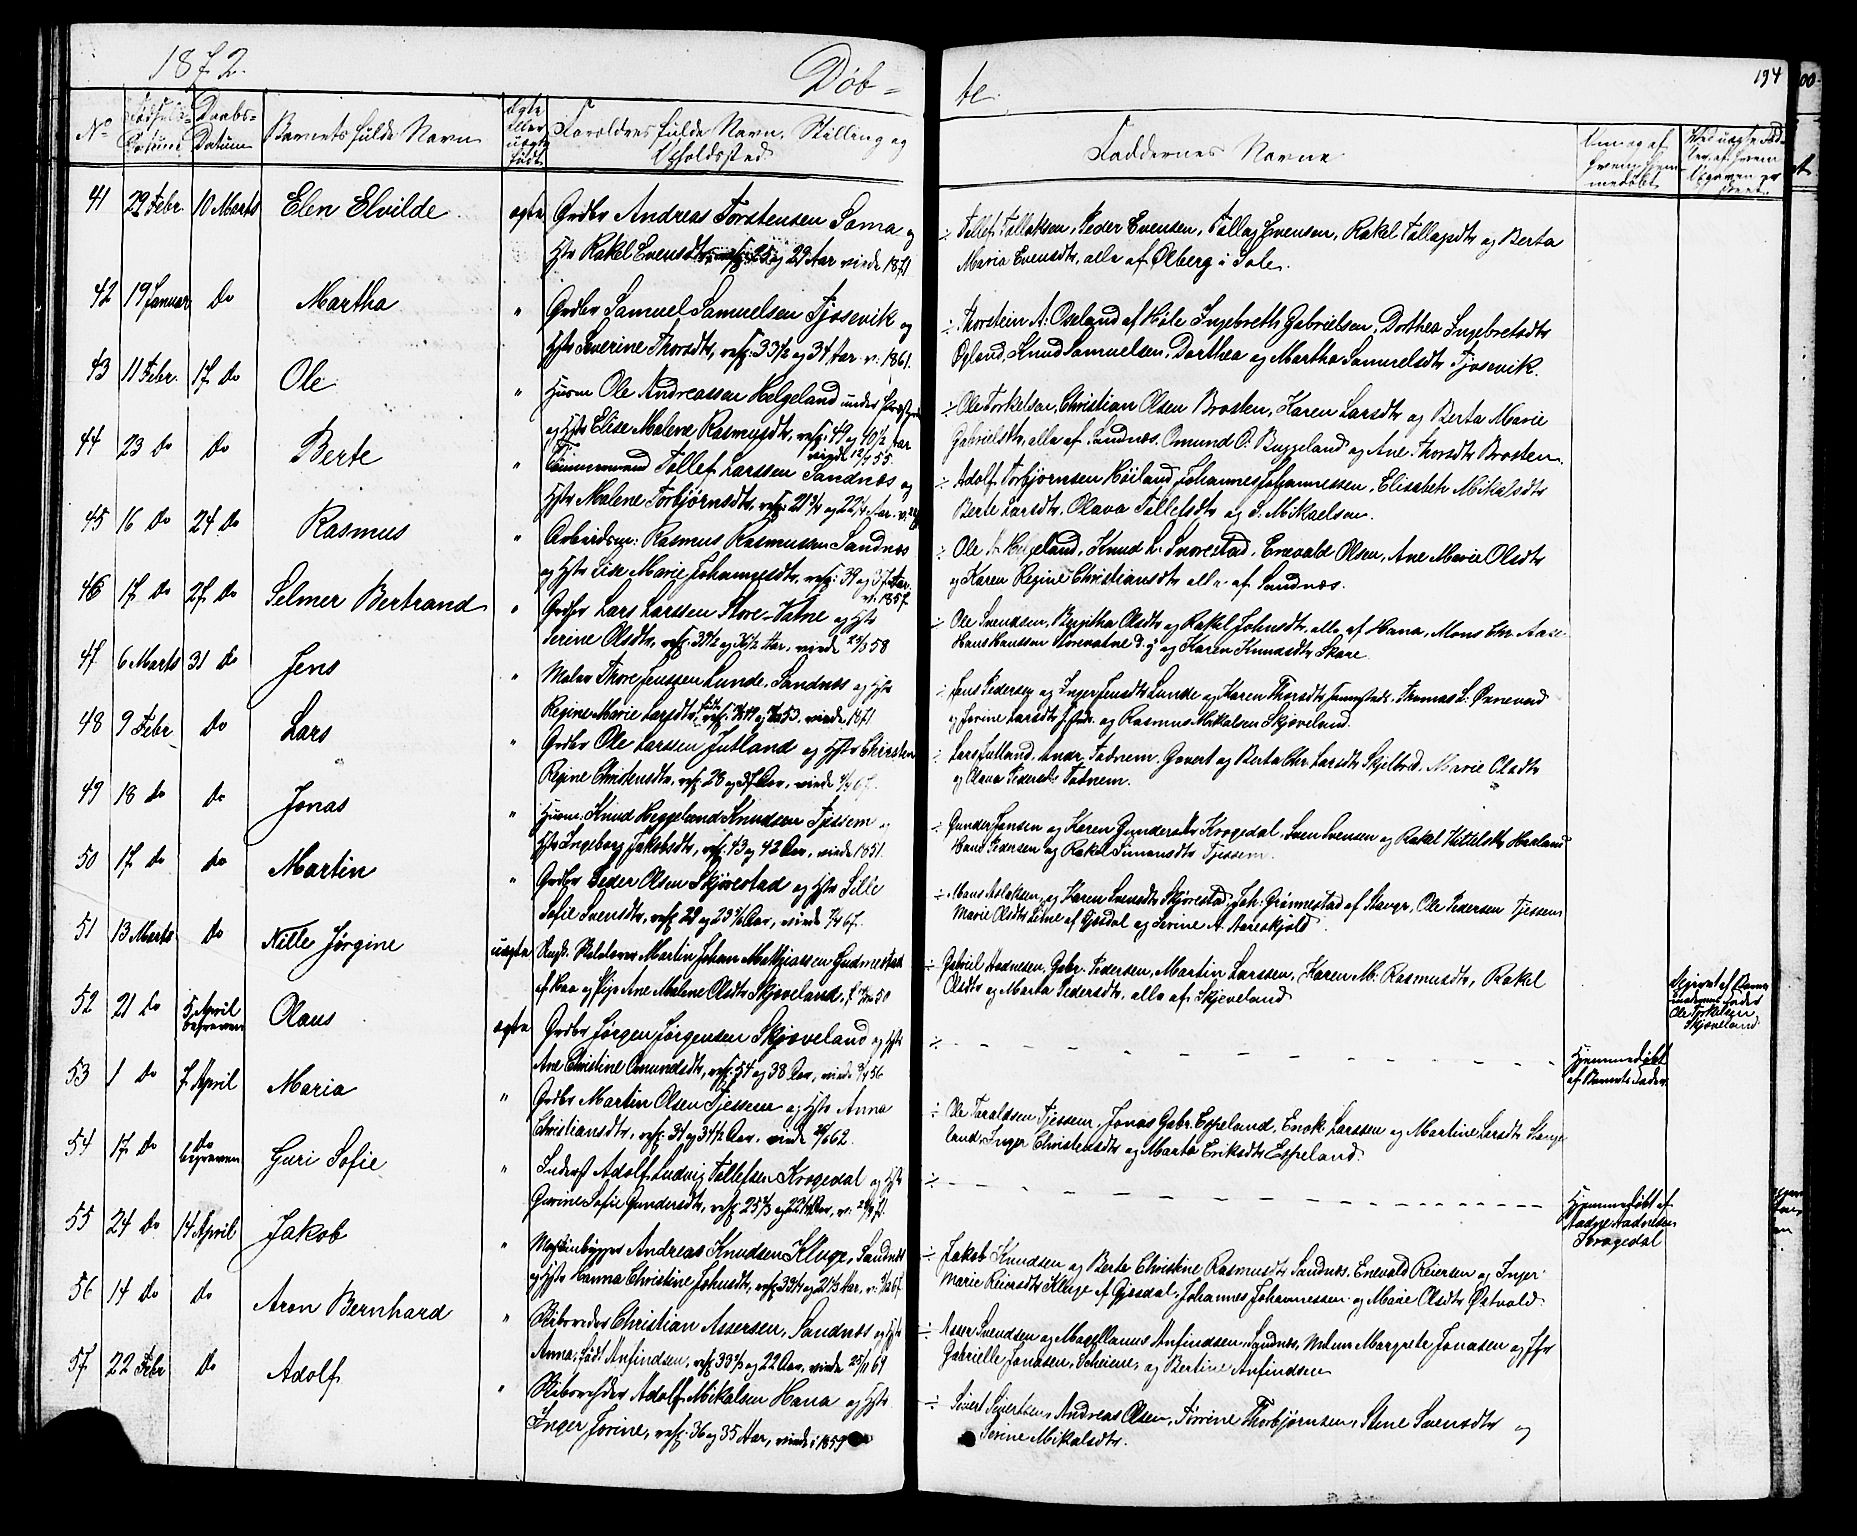 1872.
Døb-
te.
194
No
Fødsels-
Datum
Daabs-
Datum
Barnets fulde Navn
Ægte
eller
uægte
født
Forældres fulde Navn, Stilling og
Opholdssted
Faddernes Navne
Om og af
hvem hjem-
medøbt
41 29 Febr. 10 Marts Elen Elvilde ægte Grdbr Andreas Torstensen Soma og
Hstr Rakel Evensdtr, resp. 25 og 29 Aar viede 1871
÷ Tollef Tollaksen, Peder Evensen, Evensen, Rakel og Berta
Maria Evensdtr, alle af Ølberg i Sole.
42 19 Januar Do Martha " Grdbr Samuel Samuelsen Tjøsevik og
Hstr Severine Thorsdtr, resp. 33 1/2 og 34 Aar v. 1861.
÷ Thorstein A. Oseland af Høle Ingebreth Gabrielsen, Dorthea Ingebretsdtr
Øgland, Knud Samuelsen, Dorthea og Martha Samuelsdtr Tjøsevik.
43 11 Febr. 17 Do Ole " Husm Ole Andreassen Helgeland under
og Hstr Elise Malene Rasmusdtr, resp. 49 og 40 1/2 Aar
viede 55.
÷ Ole Torkelsen, Christian Olsen Brosten, Karen Larsdtr og Berta Marie
Gabrielsdtr, alle af Sandnæs. Omund O. Byggeland og Ane Thorsdtr Brosten.
44 23 Do Do Berte " Tømmermand Tollef Larssen Sandnæs og
Hstr Malene Torbjørnsdtr, resp. 21 3/4 og 22 1/4 Aar. v.
÷ Adolf Torbjørnsen Høiland, Johannes Johannessen, Elisabeth Mikalsdtr
Berte Larsdtr, Olava Tollefsdtr og S. Mikaelsen.
45 16 Do 24 Do Rasmus " Arbeidsm: Rasmus Rasmussen Sandnæs
og Hstr Lise Marie Johannesdtr, resp: 39 og 37 Aar.
v. 1857.
÷ Ole A. Helgeland, Knud L. Snorestad, Enevald Olsen, Ane Marie Olsdtr
og Karen Regine Christiansdtr alle af Sandnæs.
46 17 Do 27 Do Selmer Bertrand " Grdbr Lars Larssen Store-Vatne og Hstr
Serine Olsdtr, resp. 39 1/2 og 36 1/2 Aar, viede 23/ 58
÷ Ole Svendsen, Birgitha Olsdtr og Rakel Johnsdtr, alle af Hana, Mons Chr. Aase
Hans Hanssen Storevatne d.y og Karen Knudsdtr Skare.
47 6 Marts 31 Do Jens " Maler Thore Jenssen Lunde, Sandnæs og Hstr
Regine Marie Larsdtr, viede 1871
÷ Jens Pedersen og Inger Jensdtr Lunde og Karen Thorsdtr Thomas L. Ørnevad
og Jorine Larsdtr og Rasmus Mikalsen Skjæveland.
48 9 Febr Do Lars " Grdbr Ole Larssen Jutland og Hstr Chirsten
Regine Christensdtr, resp. 28 og 37 Aar, viede 67.
÷ Lars Jutland, Andr. Fadnem, Govert og Berta Chr. Larsdtr Skjelbred, Marie Olsdtr
og Olava Pedersdtr Fadnem.
49 18 Do Do Jonas " Husm: Knud Heggeland Knudsen Tjessem og
Hstr Ingeborg Jakobsdtr, resp. 43 og 42 Aar, viede 1851.
÷ Gunder Jonsen og Karen Gundersdtr Krogedal, Sven Svensen og Rakel Kittelsdtr Haaland
Hans Pedersen og Rakel Simonsdtr Tjessem.
50 17 Do Do Martin " Grdbr Peder Olsen Skjørestad og Hstr Sille
Sofie Svensdtr, resp. 28 og 23 Aar, viede 67.
÷ Mons Aslaksen og Karen Svensdtr Skjørestad, Joh. Grimmestad af Stavgr, Ole Pedersen Tjessem
Marie Olsdtr Lime af Gjesdal og Serine A. Aareskjold.
51 13 Marts Do Nille Jørgine uægte Ungk. Skolelærer Martin Johan Mathiassen Gudmestad
af Haa og Pige Ane Malene Olsdtr Skjæveland, f. 50
÷ Gabriel Aadnesen, Gabr. Pedersen, Martin Larssen, Karen M. Rasmusdtr, Rakel
Olsdtr og Marta Pedersdtr, alle af Skjæveland
Skjævet af Barne-
moderens Fader
Ole Torkelsen
Skjæveland
52 21 Do 5 April
begraven Olaus ægte Grdbr Jørgen Jørgensen Skjæveland og Hstr
Ane Christine Omundsdtr, resp. 54 og 38 Aar, viede 56
÷ - - - - - - - - - -
Hjemmedøbt
af Barnets Fader
53 1 Do 7 April Maria " Grdbr Martin Olsen Tjessem og Hstr Anna
Christiansdtr, resp: 31 og 34 1/2 Aar. viede 62.
÷ Ole Taraldsen Tjessem, Jonas Gabr. Espeland, Enok Larssen og Martine Larsdtr Stange-
land, Inger Christensdtr og Marta Eriksdtr Espeland.
54 17 Do Do
begraven Guri Sofie " Inderst Adolf Ludvig Tollefsen Krogedal og Hstr
Gurine Sofie Gundersdtr, resp. 25 og 22 Aar, v. 71.
÷ - - - - - - - - - -
Hjemmedøbt af
Aadne Aadnesen
Krogedal
55 24 Do 14 April Jakob " Maskinbygger Andreas Knudsen Kluge, Sandnæs
og Hstr Hanna Christine Johnsdtr, resp. 39 og 21 Aar, v. 67.
÷ Jakob Knudsen og Berte Christine Rasmusdtr Sandnæs. Enevald Reiersen og Inger
Marie Reiersdtr Kluge af Gjesdal, Johannes Johannessen og Marie Olsdtr Østvold.
56 14 Do Do Aron Bernhard " Skibsreder Christian Assersen, Sandnæs og Hstr
Anna, født Anfindsen, resp. 33 og 22 Aar, viede 25/11 69
÷ Asser Svendsen og Magellanus Anfindsen, Sandnæs, Mdme Margrete Jonassen og Jfr
Gabrielle Jonassen, Scheiene, og Bertine Anfindsen
57 22 Febr Do Adolf " Skibsreder Adolf Mikalsen Hana og Hstr
Inger Jorine, resp. 36 og 35 Aar, viede i 1859
÷ Sivert Sivertsen, Andreas Olsen, Tørrine Thorbjørnsen, Stine Svensdtr og
Serine Mikalsdtr.